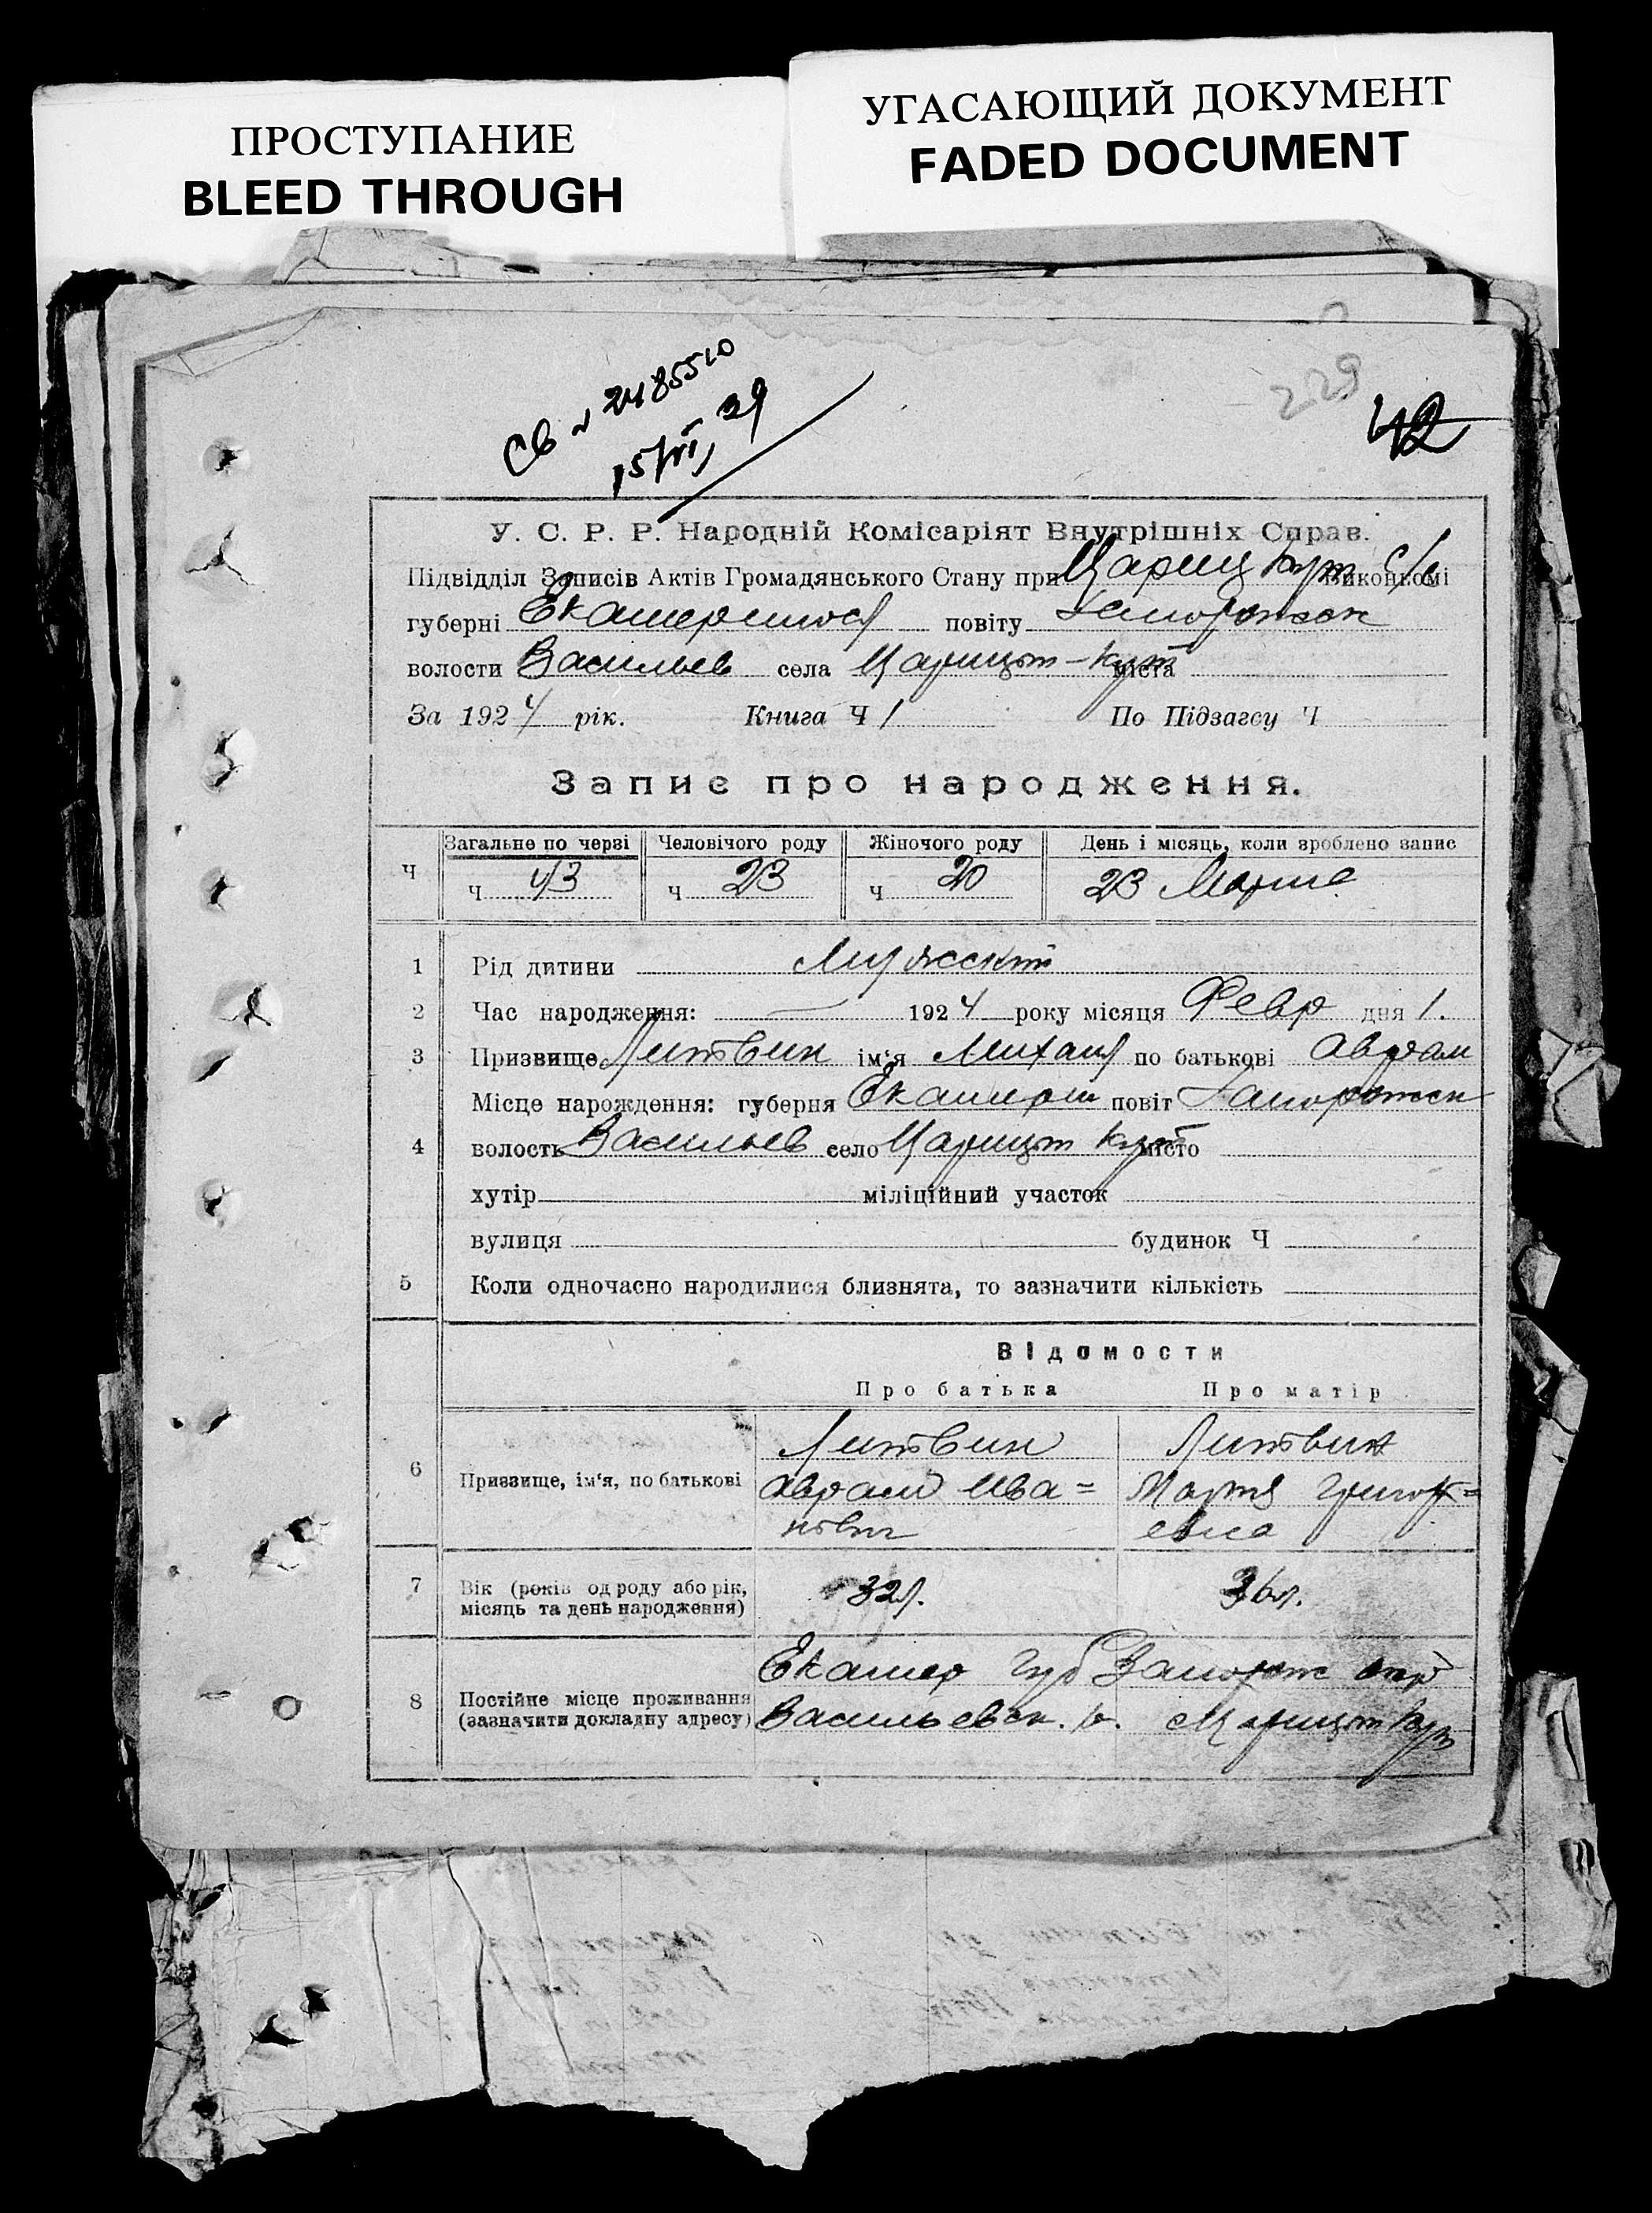 ПРОСТУПАНИЕ
BLEED THROUGH
УГАСАЮЩИЙ ДОКУМЕНТ
FADED DOCUMENT
229
42
Св ~ 2485510
У. С. Р. Р. Народній Комісаріят Внутрішніх Справ.
Підвідділ Записів Актів Громадянського Стану при Цариц Кут с/с Виконкомі
губерні Екатериносл повіту Запорожск
волости Васильев села Царицын-Кут міста
За 1924 рік. Книга Ч 1 По Підзагсу Ч
Запис про народження.
Ч Загальне по черзі Человічого роду Жіночого роду День і місяць, коли зроблено запис
Ч 43 Ч 23 Ч 20 23 Марта
1 Рід дитини Мужской
2 Час народження: — 1924 року місяця Февр дня 1.
3 Призвище Литвин ім'я Михаил по батькові Аврам
Місце нарождення: губерня Екатерин повіт Запорожск
4 волость Васильев село Царицын Кут місто
хутір міліційний участок
вулиця будинок Ч
5 Коли одночасно народилися близнята, то зазначити кількість
Відомости
Про батька Про матір
6 Призвище, ім'я, по батькові Литвин Литвин
Аврам Ива= Марфа Григор=
нович евна
7 Вік (років од роду або рік, місяць та день народження) 32 л. 36 л.
8 Постійне місце проживання (зазначити докладну адресу) Екатер губ Запорож окр
Васильевск. в. Царицын Кут